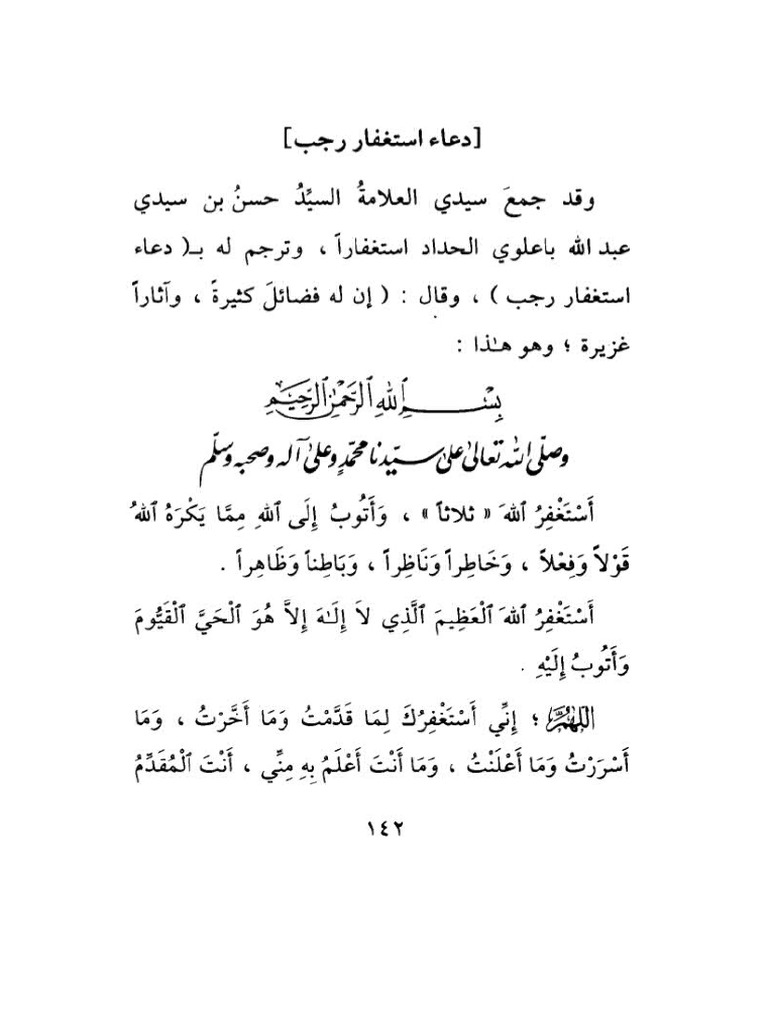 [دعاء استغفار رجب]
وقد جمعَ سيدي العلامةُ السيِّدُ حسنُ بن سيدي
عبد الله باعلوي الحداد استغفاراً ، وترجم له بـ( دعاء
استغفار رجب ) ، وقال : ( إن له فضائلَ كثيرةً ، وآثاراً
غزيرة ؛ وهو هـٰذا :
بِسْمِ ٱللهِ ٱلرَّحْمَٰنِ ٱلرَّحِيمِ
وصلّى الله تعالىٰ علىٰ سيّدنا محمّدٍ وعلىٰ آله وصحبه وسلّم
أَسْتَغْفِرُ ٱللهَ « ثلاثاً » ، وَأَتُوبُ إِلَى ٱللهِ مِمَّا يَكْرَهُ ٱللهُ
قَوْلاً وَفِعْلاً ، وَخَاطِراً وَنَاظِراً ، وَبَاطِناً وَظَاهِراً .
أَسْتَغْفِرُ ٱللهَ ٱلْعَظِيمَ ٱلَّذِي لاَ إِلَـٰهَ إِلاَّ هُوَ ٱلْحَيَّ ٱلْقَيُّومَ
وَأَتُوبُ إِلَيْهِ .
اللَّهُمَّ ؛ إِنِّي أَسْتَغْفِرُكَ لِمَا قَدَّمْتُ وَمَا أَخَّرْتُ ، وَمَا
أَسْرَرْتُ وَمَا أَعْلَنْتُ ، وَمَا أَنْتَ أَعْلَمُ بِهِ مِنِّي ، أَنْتَ ٱلْمُقَدِّمُ
١٤٢